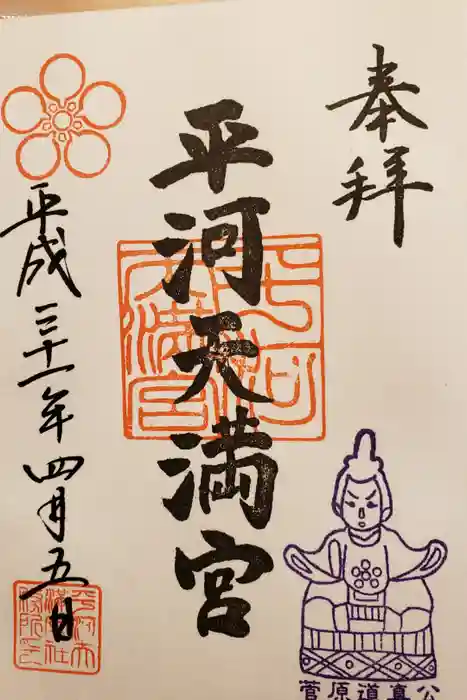 奉拝
平河天満宮
平成三十一年四月五日
平河天満宮
菅原道真公